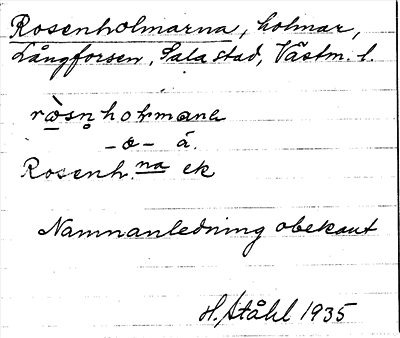 Rosenholmarna, holmar,
Långforsen, Sala stad, Västm. l.
ræ̀sn̥holmana
-o- á.
Rosenh.na ek
Namnanledning obekant
H. Ståhl 1935